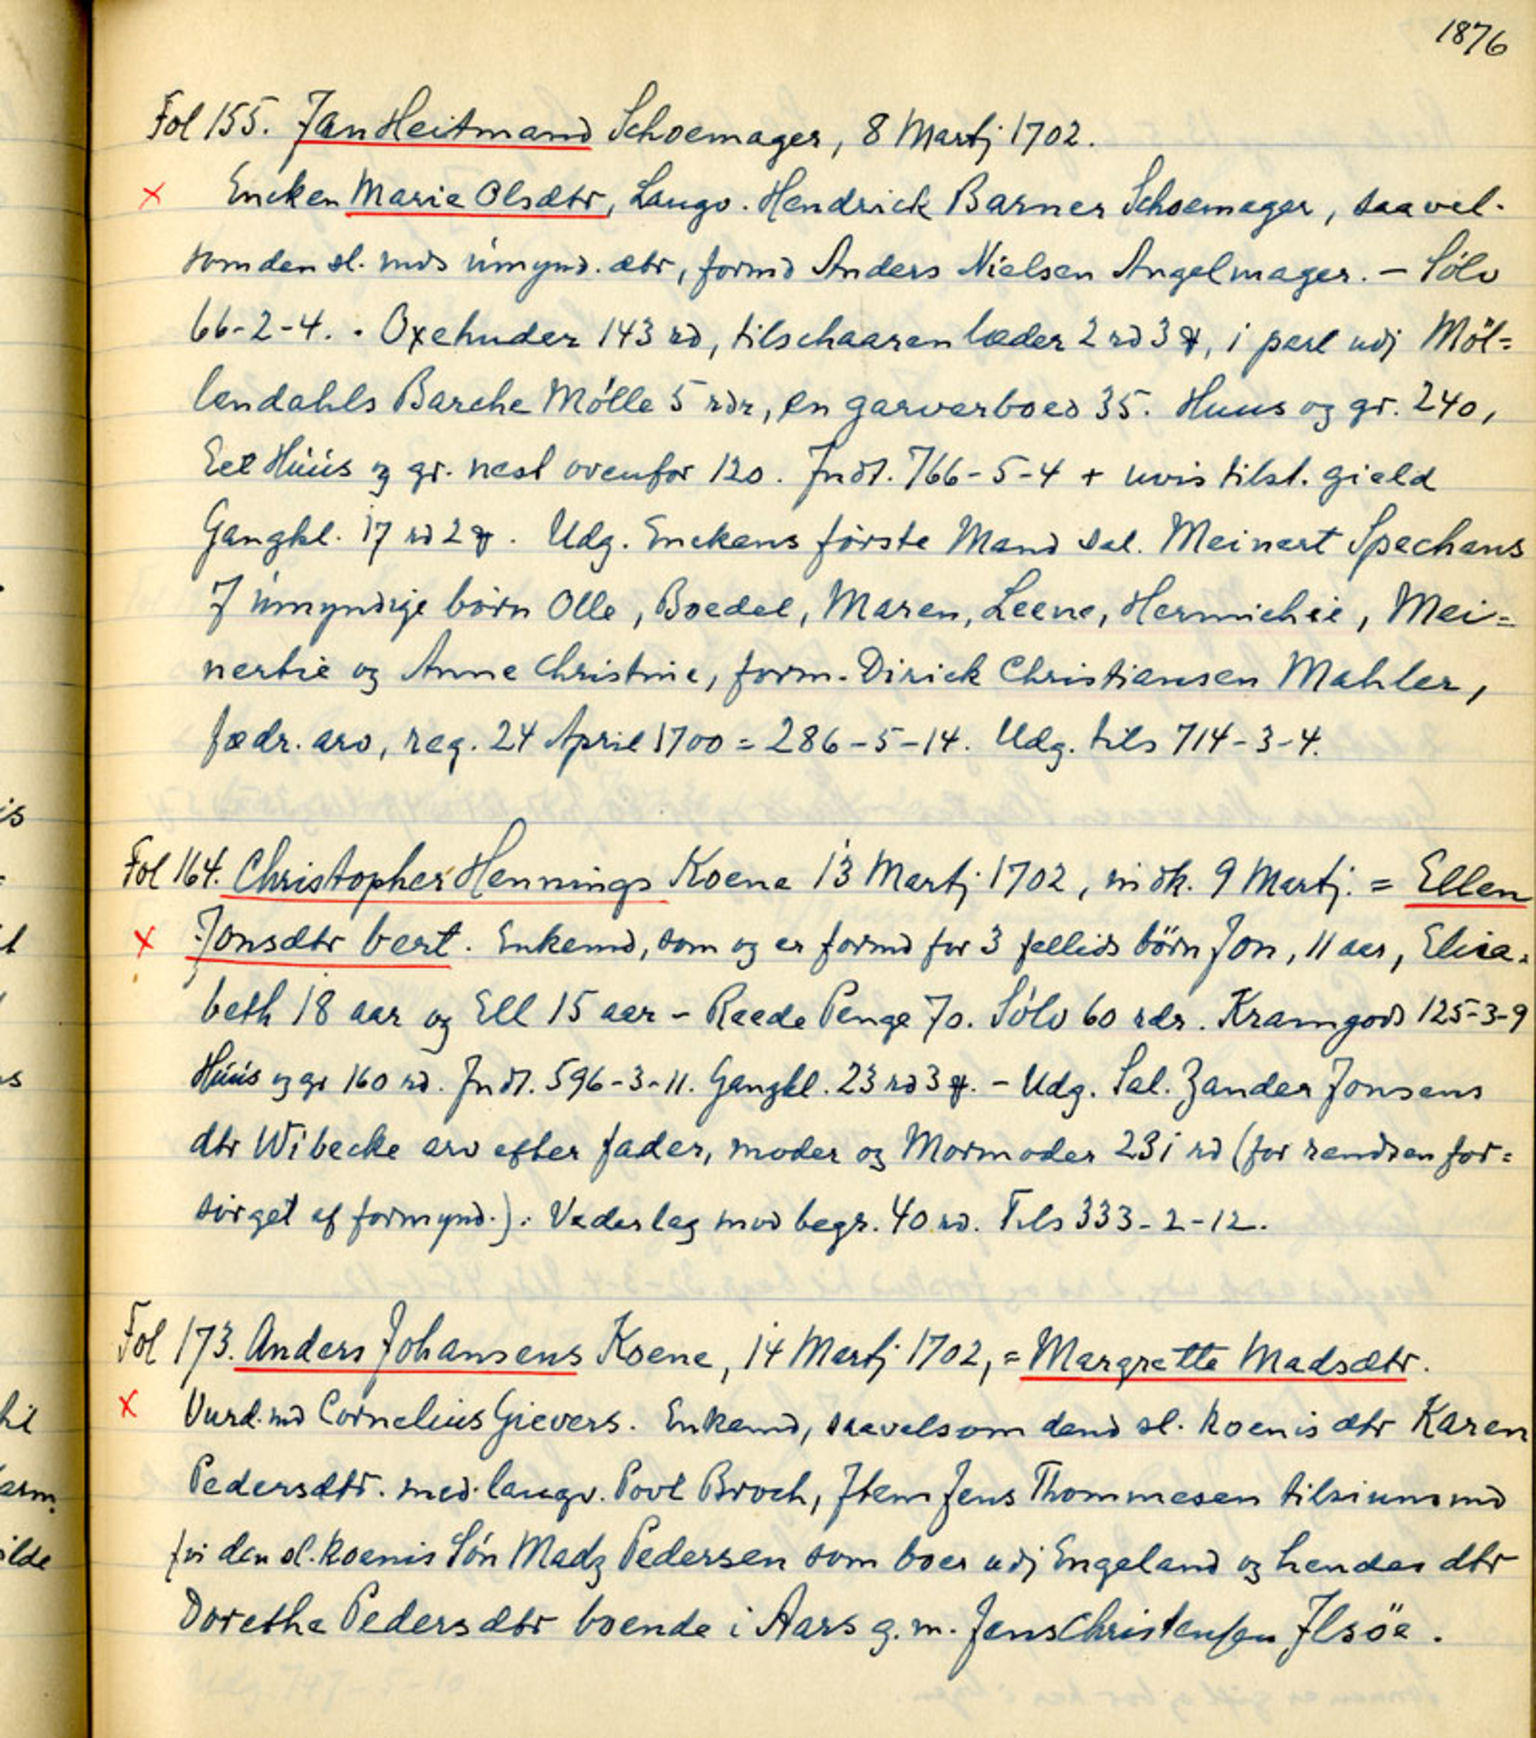 1876
Fol 155. Jan Heitmand Schoemager, 8 Martj 1702.
x Encken Marie Olsdtr, Laugv. Hendrick Barner Schoemager, saavel-
som den sl. mds úmynd. dtr, formd Anders Nielsen Angelmager. – Sólv
66-2-4. - Oxehuder 143 rd, tilschaaren læder 2 rd 3 ꝣ, i part udj Möl=
lendahls Barche Mólle 5 rdr, en garverboed 35. Huus og gr. 240,
Eet Húús og gr. nest ovenfor 120. Indt. 766-5-4 + uvis tilst. gield
Gangkl. 17 rd 2 ꝣ. Udg. Enckens fórste Mand sal. Meinert Spechans
7 úmyndige bórn Olle, Boedel, Maren, Leene, Hermichie, Mei=
nertie og Anne Christine, form. Dirick Christiansen Mahler,
fædr. arv, reg. 24 April 1700 = 286-5-14. Udg. tils 714-3-4.
Fol 164. Christopher Hennings Koene 13 Martj 1702, midk. 9 Martj. = Ellen
x Jonsdtr bert. Enkemd, som og er formd for 3 fellids börn Jon, 11 aar, Elisa=
beth 18 aar og Ell 15 aar – Reede Penge 70. Sólv 60 rdr. Kramgods 125-3-9
Húús og gr 160 rd. Indt. 596-3-11. Gangkl. 23 rd 3 ꝣ. – Udg. Sal. Zander Jonsens
dtr Wibecke arv efter fader, moder og Mormoder 231 rd (for rendsen for=
sórget af formynd.). Vederlag mod begr. 40 rd. Tils 333-2-12.
Fol 173. Anders Johansens Koene, 14 Martj 1702, = Margrette Madsdtr.
x Vurd.md Cornelius Gievers. Enkemd, saavelsom dend sl. koenis dtr Karen
Pedersdtr. med laugv. Povl Broch, Item Jens Thommesen tilsiunsmd
for den sl. koenis Són Madz Pedersen som boer udj Engeland og hendes dtr
Dorethe Pedersdtr boende i Aars g. m. Jens Christensen Ilsöe.